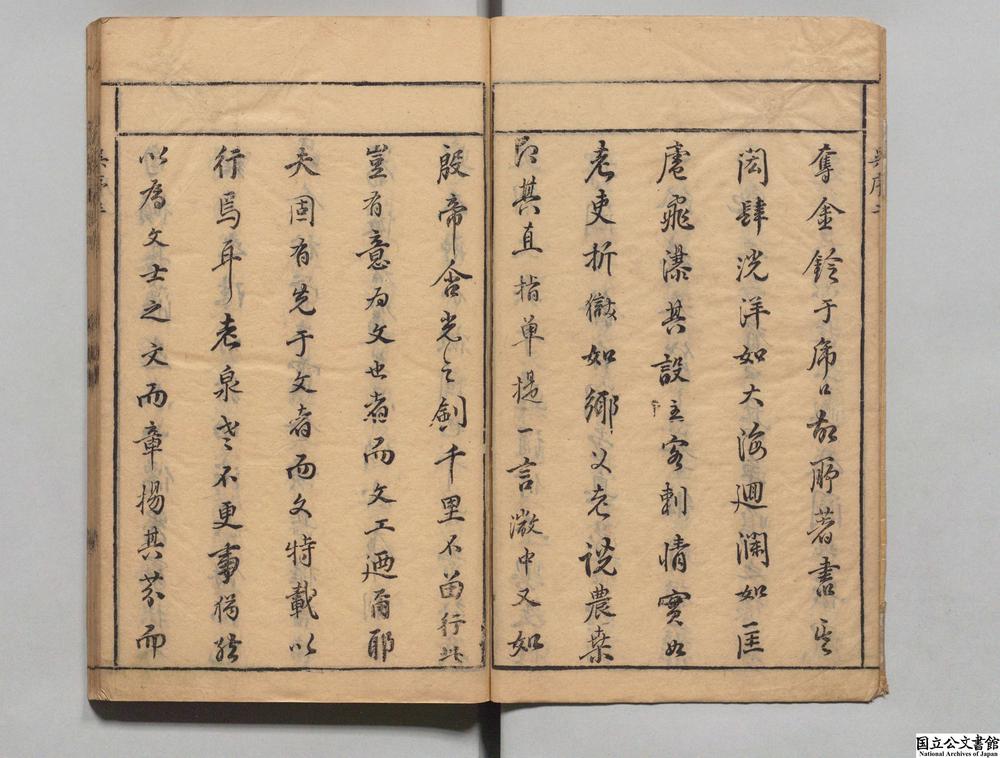 奪金鈴于虎口故所著書其
閎肆洸洋如大海迴瀾如匡
廬飛瀑其設主客刺情實如
老吏折獄如鄉父老說農桑
即其直指单提一言微中又如
殷帝含光之劍千里不留行此
豈有意为文也者而文工迺爾耶
夫固有先于文者而文特載以
行焉耳老泉老不更事猶
以為文士之文而章揚其芬而
国立公文書館
National Archives of Japan